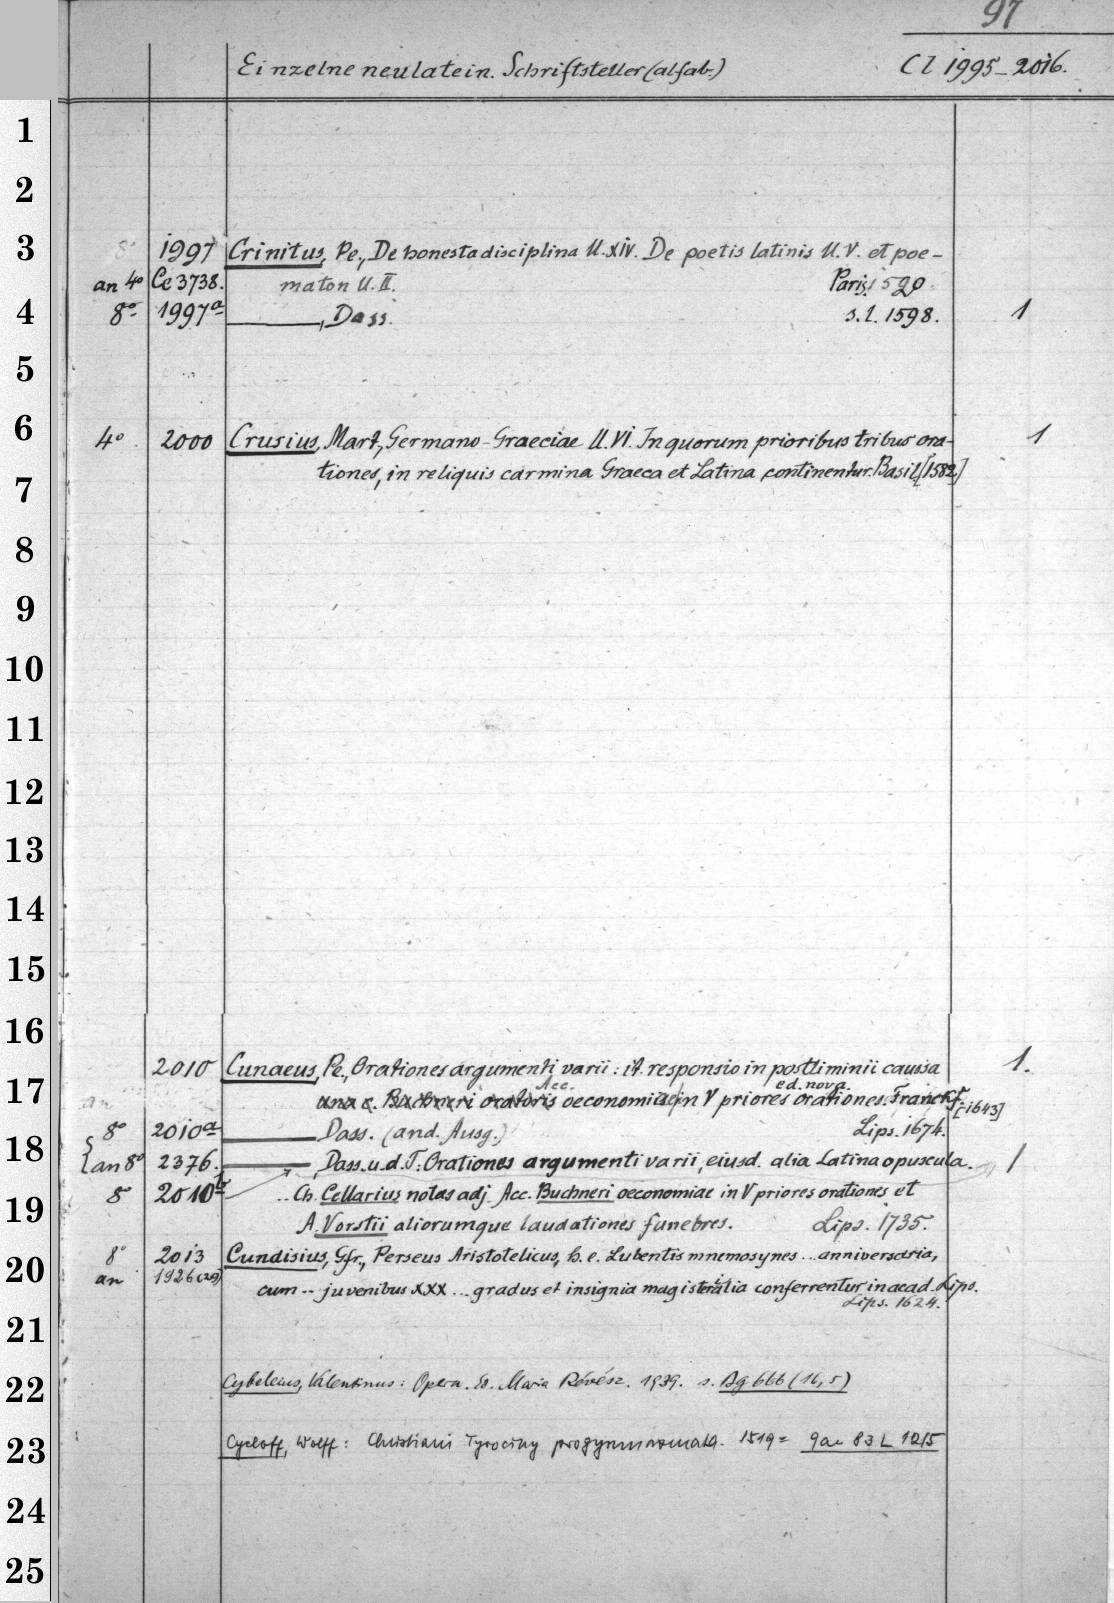 97
Einzelne neulatein. Schriftsteller (alfab.)
Cl 1995-2016.
1
2
3
8° 1997 Crinitus, Pe., De honesta disciplina ll. XIV. De poetis latinis ll. V. et poe-
an 4° Ce 3738. maton ll. II. Paris. 1520
4
8° 1997a ———, Dass. s. l. 1598. 1
5
6
4° 2000 Crusius, Mart., Germano-Graeciae ll. VI. In quorum prioribus tribus ora- 1
tiones, in reliquis carmina Graeca et Latina continentur. Basil. [1582]
7
8
9
10
11
12
13
14
15
16
2010 Cunaeus, Pe., Orationes argumenti varii: it. responsio in postliminii caussa 1.
17
an una c. Buchneri oratoris Acc. oeconomia in V priores orationes. ed. nova. Franckf. [1643]
8° 2010a ——— Dass. (and. Ausg.) Lips. 1674.
18
an 8° 2376. ———, Dass. u. d. T.: Orationes argumenti varii, eiusd. alia Latina opuscula. 1
8° 2010b .. Ch. Cellarius notas adj. Acc. Buchneri oeconomiae in V priores orationes et
19
A. Vorstii aliorumque laudationes funebres. Lips. 1735.
8° 2013 Cundisius, Gfr., Perseus Aristotelicus, h. e. Lubentis mnemosynes ... anniversaria,
20
an 1926 (29) cum .. juvenibus XXX ... gradus et insignia magisteralia conferrentur in acad. Lips.
Lips. 1624.
21
22
Cybeleius, Valentinus: Opera. Ed. Maria Révész. 1939. s. Ag 666 (16,5)
23
Cycloff, Wolff: Christiani Tyrociny progymnasmata. 1519 = 9 an 83 L 1215
24
25